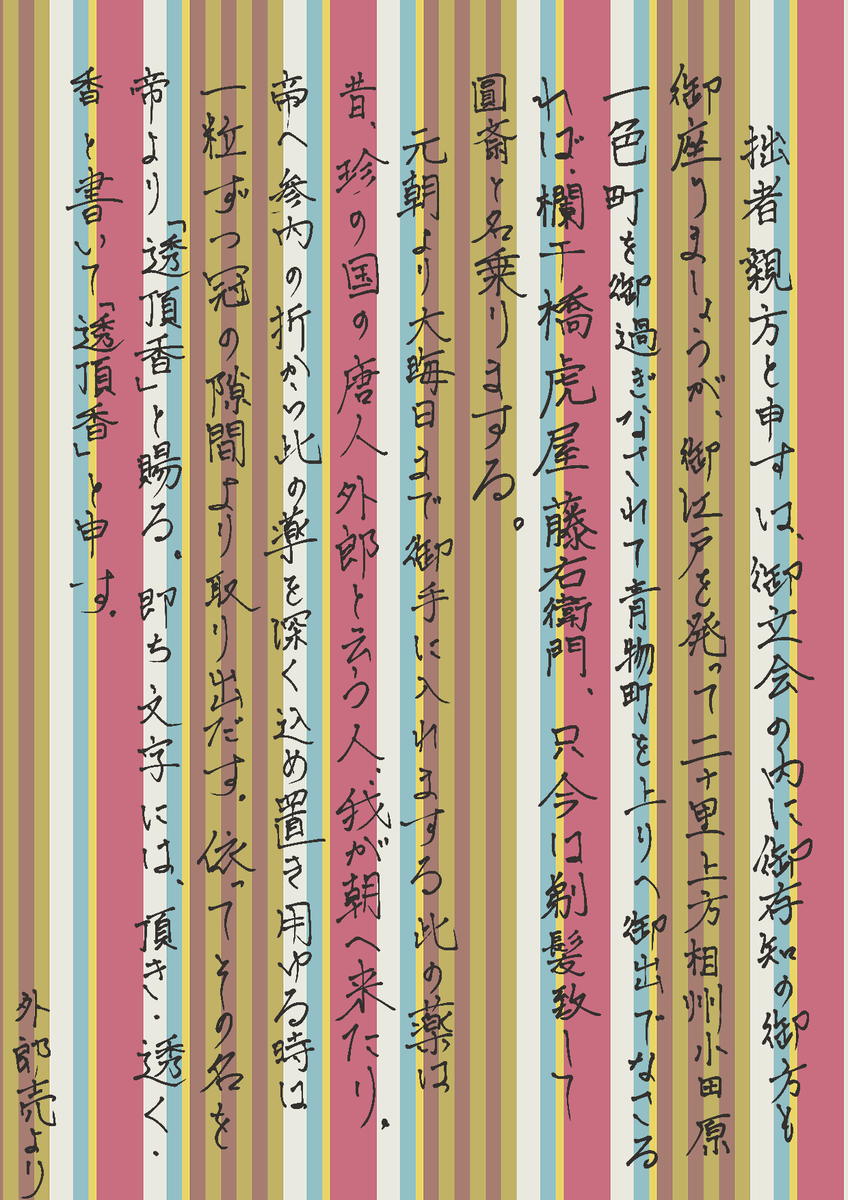 拙者親方と申すは、御立会の内に御存知の御方も
御座りましょうが、御江戸を発って二十里上方相州小田原
一色町を御過ぎなされて青物町を上りへ御出でなさる
れば、欄干橋虎屋藤右衛門、只今は剃髪致して
圓斎と名乗りまする。
元朝より大晦日まで御手に入れまする此の薬は
昔、珍の国の唐人外郎と云う人、我が朝へ来たり。
帝へ参内の折から此の薬を深く込め置き用ゆる時は
一粒ずつ冠の隙間より取り出だす。依ってその名を
帝より「透頂香」と賜る。即ち文字には、頂き・透く・
香と書いて「透頂香」と申す。
外郎売より